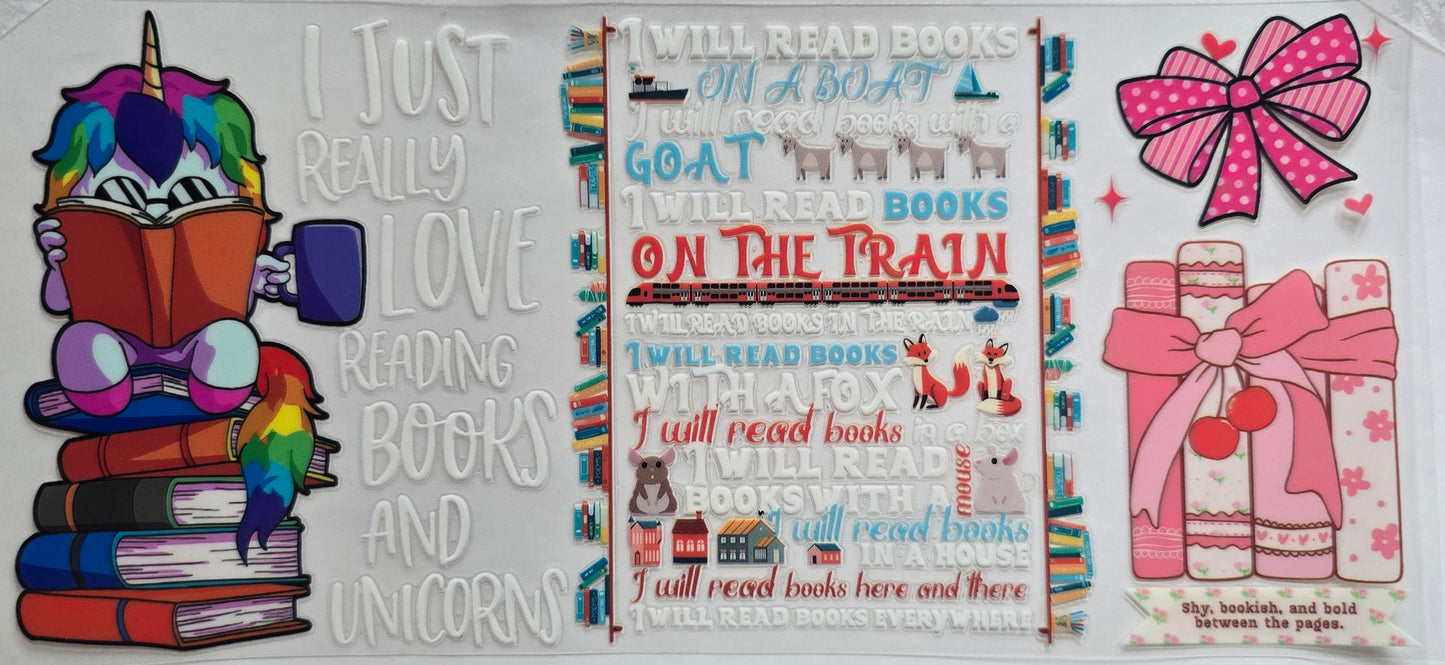 I JUST
REALLY
LOVE
READING
BOOKS
AND
UNICORNS
I WILL READ BOOKS
ON A BOAT
I will read books with a
GOAT
I WILL READ BOOKS
ON THE TRAIN
I WILL READ BOOKS IN THE RAIN
I WILL READ BOOKS
WITH A FOX
I will read books in a box
I WILL READ
BOOKS WITH A mouse
I will read books
IN A HOUSE
I will read books here and there
I WILL READ BOOKS EVERYWHERE
Shy, bookish, and bold
between the pages.